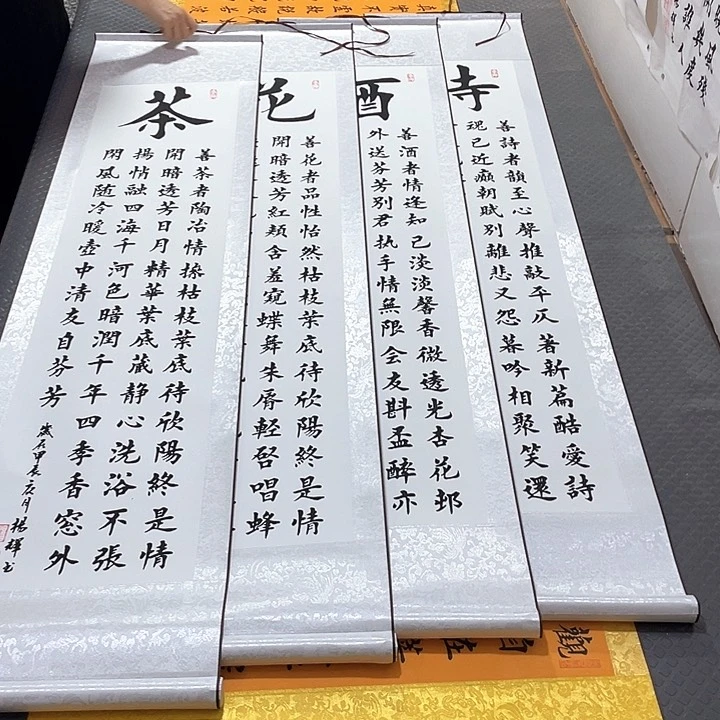 寺
善詩者韻至心聲推敲平仄著新篇酷愛詩
魂已近癲朝賦別離悲又怨暮吟相聚笑還
酉
善酒者情逢知己淡淡馨香微透光杏花邨
外送芬芳別君执手情無限会友斟盃醉亦
花
善花者品性怡然枯枝葉底待欣陽終是情
開暗透芳紅頰含羞窺蝶舞朱脣輕啓唱蜂
茶
善茶者陶冶情操枯枝葉底待欣陽終是情
開暗透芳日月精華葉底蔵静心洗浴不張
揚情融四海千河色暗潤千年四季香窓外
閑風随冷暖壺中清友自芬芳
歲在甲辰 月楊輝书
觀自在菩